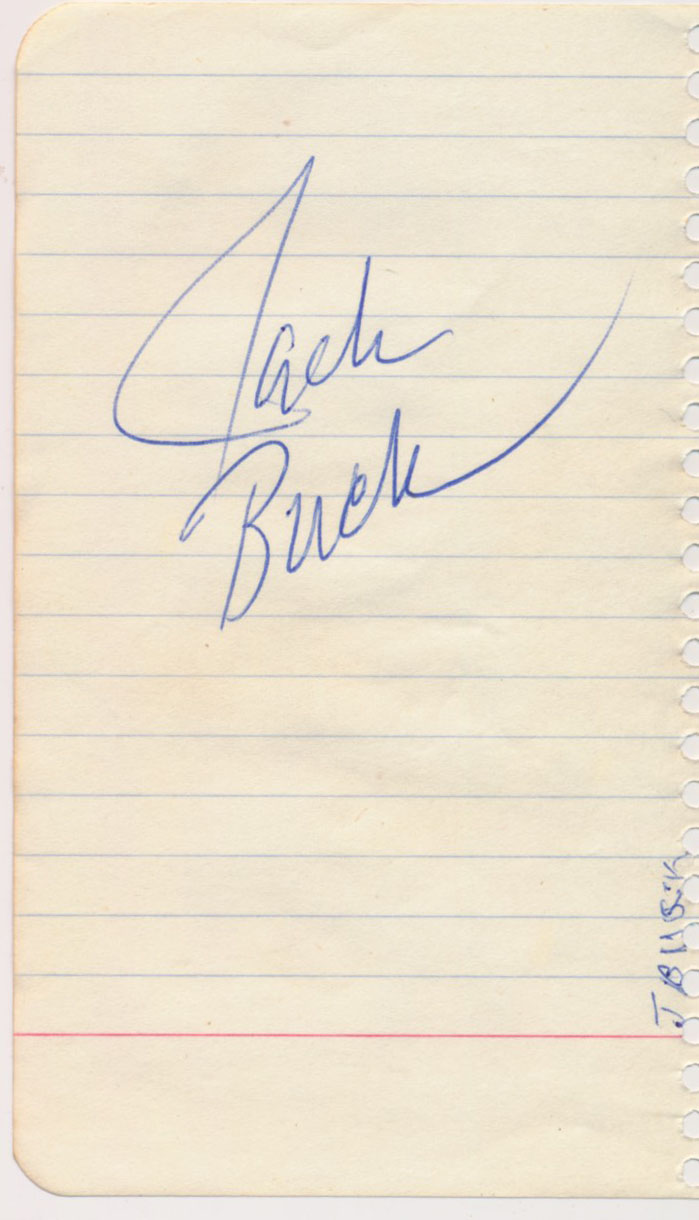 Jack
Buck
J BUCK